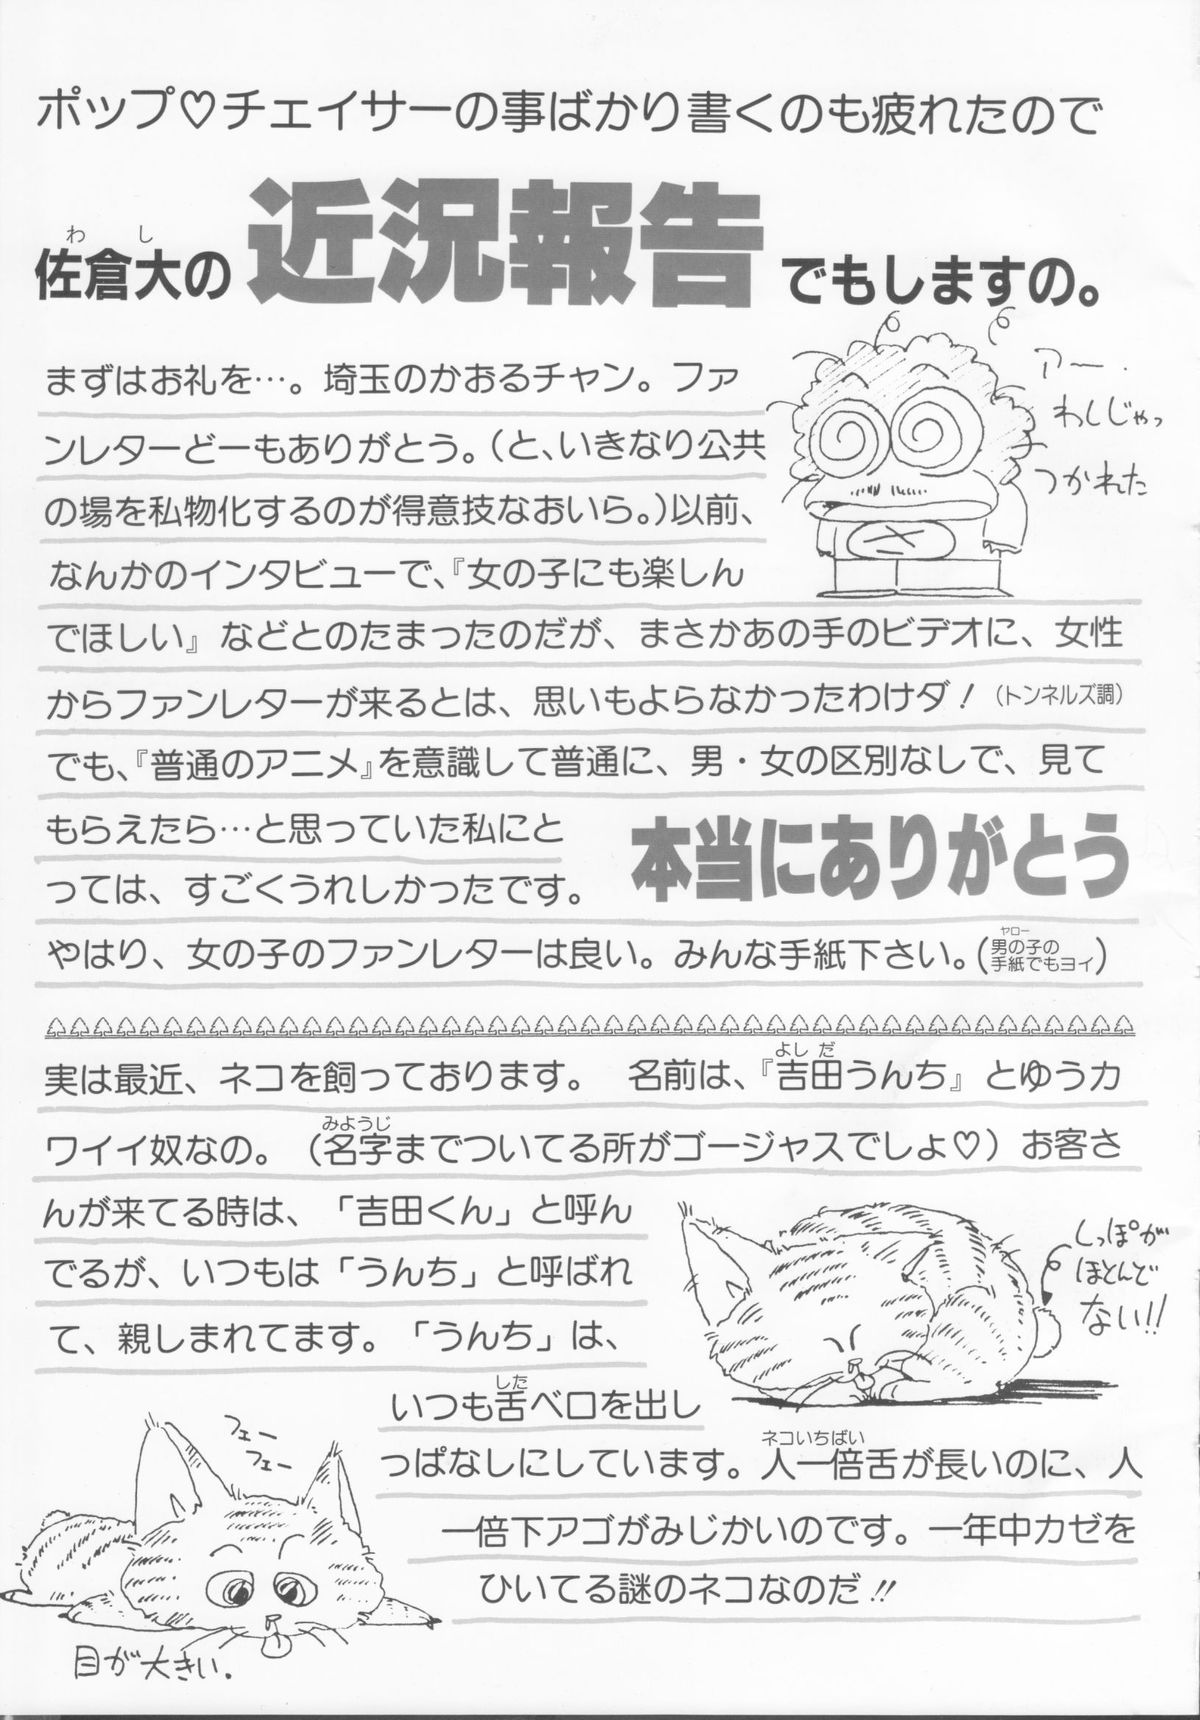 ポップ♡チェイサーの事ばかり書くのも疲れたので
わし
佐倉大の近況報告でもしますの。
アー.
わしじゃっ
つかれた
まずはお礼を…。埼玉のかおるチャン。ファ
ンレターどーもありがとう。(と、いきなり公共
の場を私物化するのが得意技なおいら。)以前、
なんかのインタビューで、『女の子にも楽しん
でほしい』などとのたまったのだが、まさかあの手のビデオに、女性
からファンレターが来るとは、思いもよらなかったわけダ！(トンネルズ調)
でも、『普通のアニメ』を意識して普通に、男・女の区別なしで、見て
もらえたら…と思っていた私にと
っては、すごくうれしかったです。
本当にありがとう
ヤロー
やはり、女の子のファンレターは良い。みんな手紙下さい。(男の子の手紙でもヨイ)
よしだ
実は最近、ネコを飼っております。 名前は、『吉田うんち』とゆうカ
みようじ
ワイイ奴なの。(名字までついてる所がゴージャスでしょ♡)お客さ
んが来てる時は、「吉田くん」と呼ん
でるが、いつもは「うんち」と呼ばれ
て、親しまれてます。「うんち」は、
しっぽが
ほとんど
ない!!
した
いつも舌ベロを出し
ネコいちばい
っぱなしにしています。人一倍舌が長いのに、人
一倍下アゴがみじかいのです。一年中カゼを
ひいてる謎のネコなのだ!!
フェー
フェー
目が大きい.